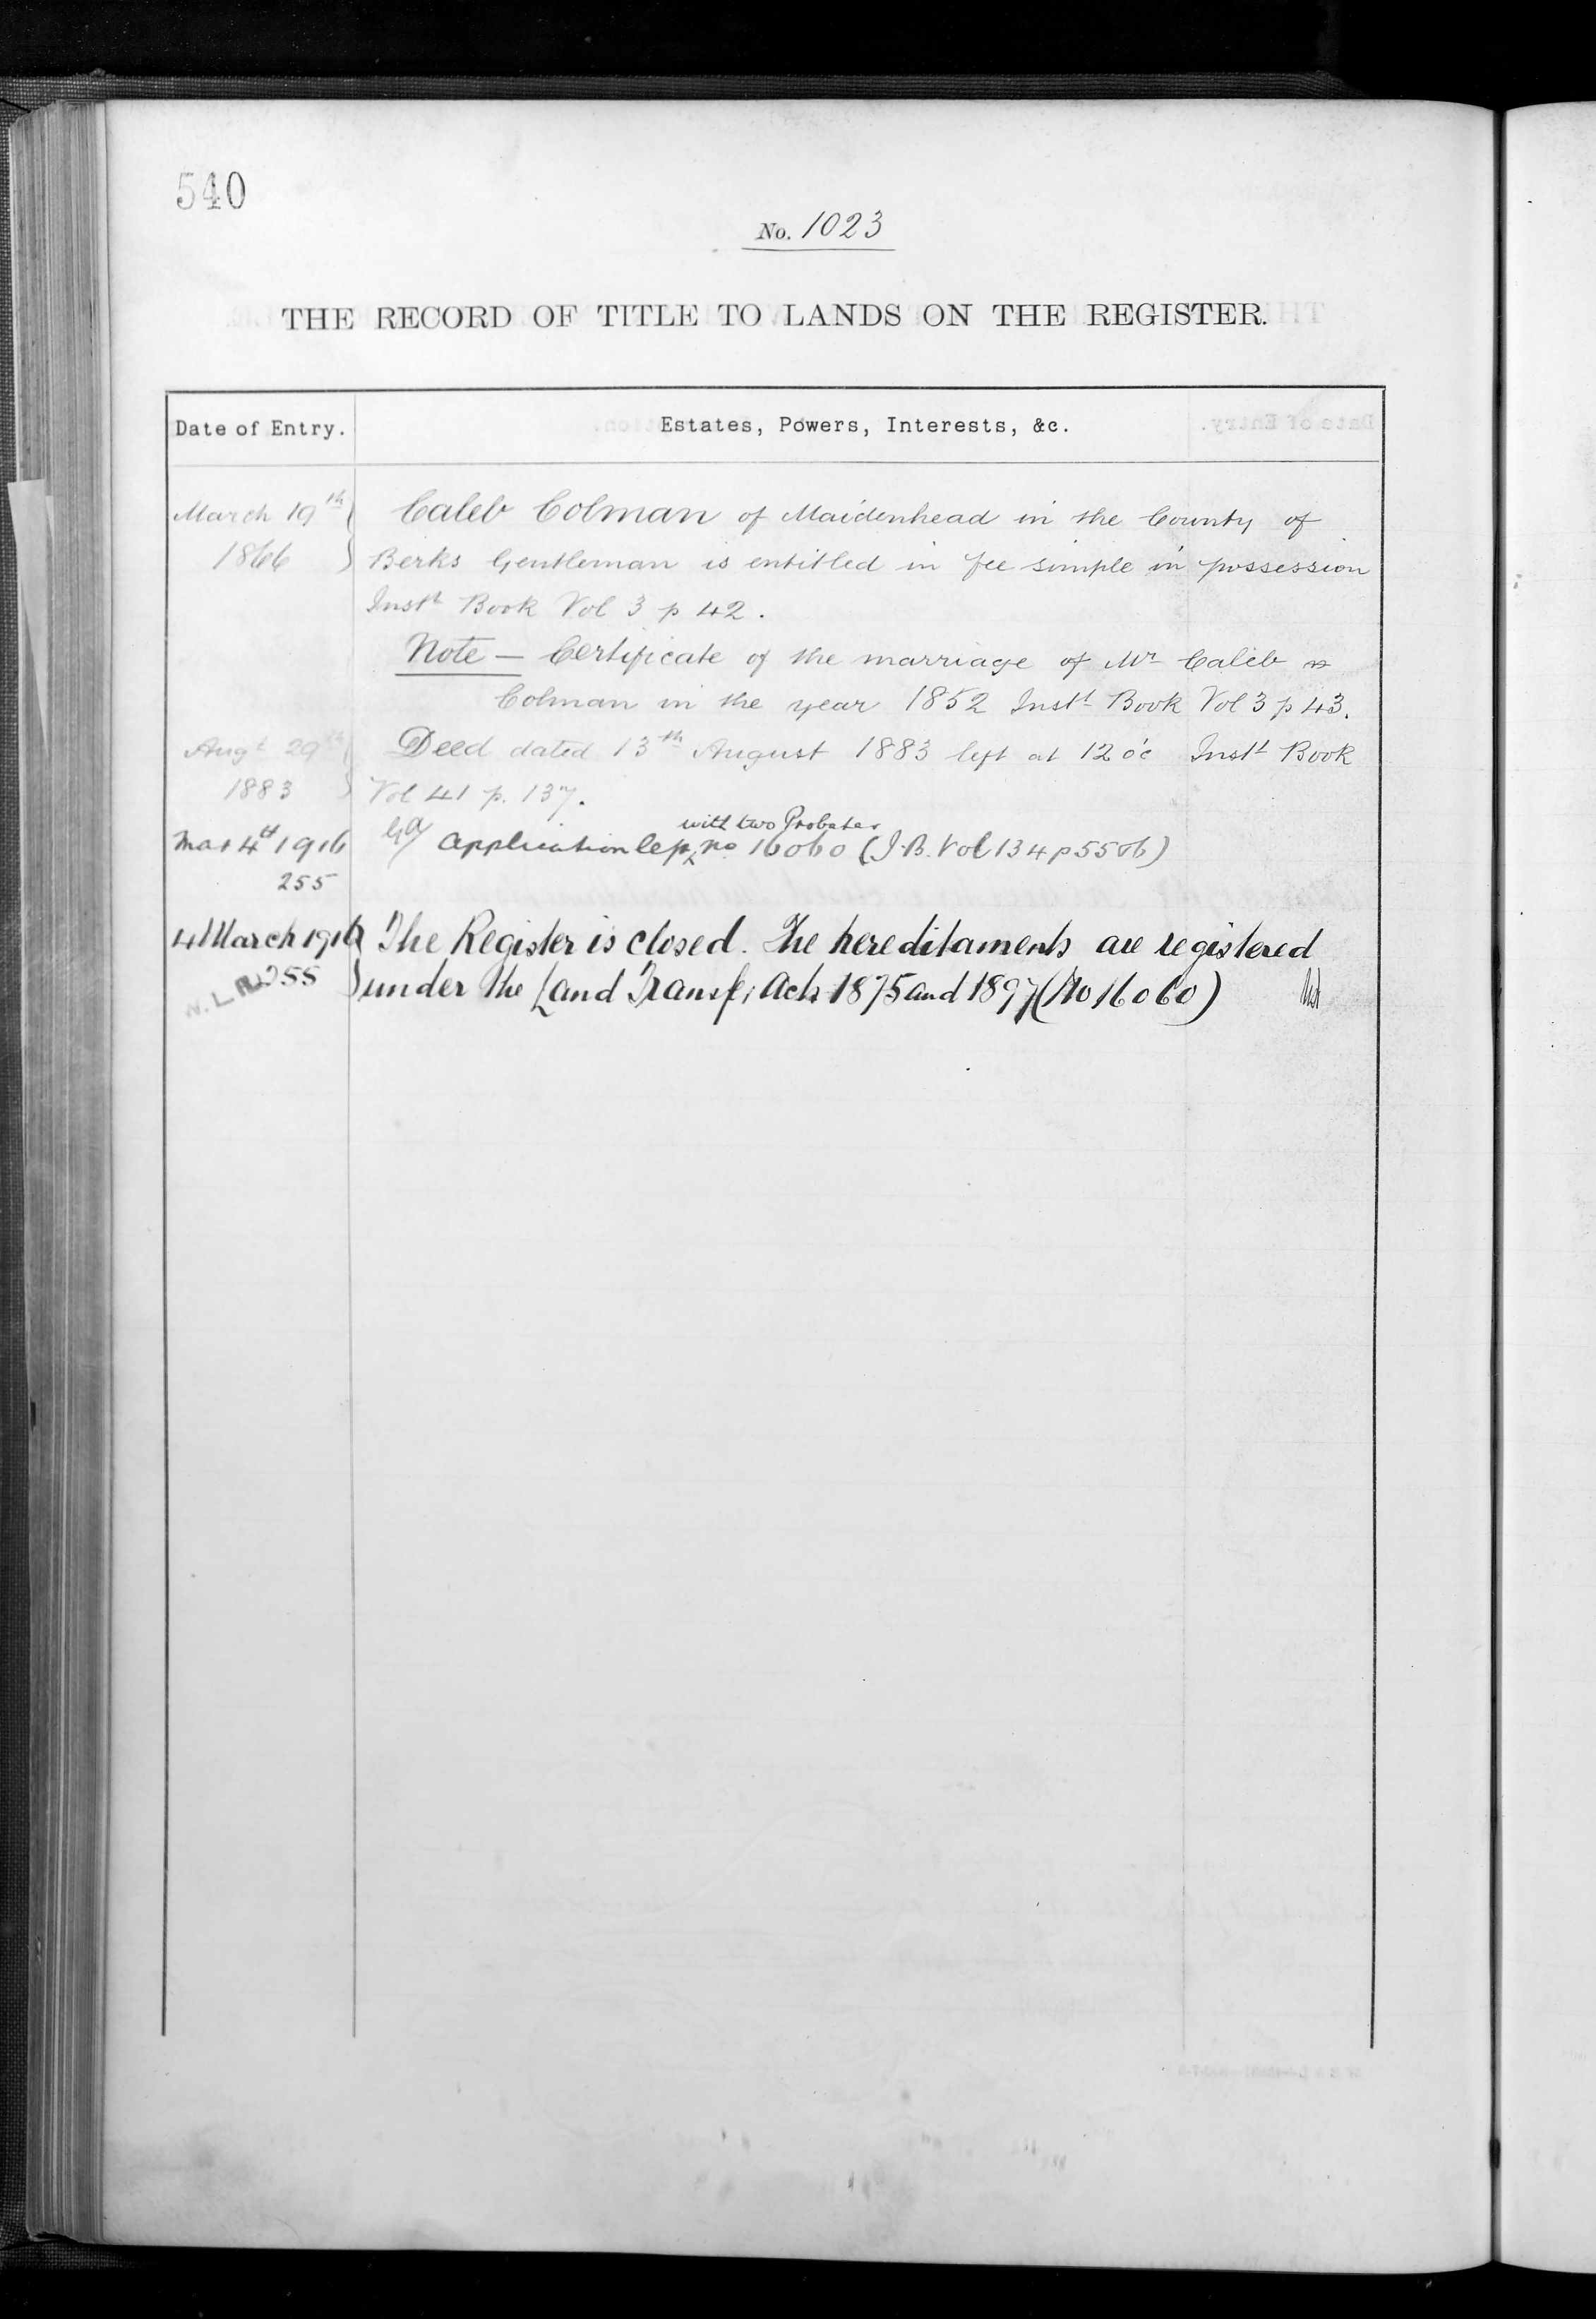 540
No. 1023
THE RECORD OF TITLE TO LANDS ON THE REGISTER.
Date of Entry. Estates, Powers, Interests, &c.
March 19th Caleb Colman of Maidenhead in the County of
1866 Berks Gentleman is entitled in fee simple in possession
Instt Book Vol 3 p 42.
Note — Certificate of the marriage of Mr Caleb
Colman in the year 1852 Instt Book Vol 3 p 43.
Augt 29th Deed dated 13th August 1883 left at 12 o'c Instt Book
1883 Vol 41 p. 137.
with two Probates
Mar 4th 1916 Application no 16060 (I.B. Vol 134 p 5506)
255
4 March 1916 The Register is closed. The hereditaments are registered
255 under the Land Transfr Acts 1875 and 1897 (No 16060)